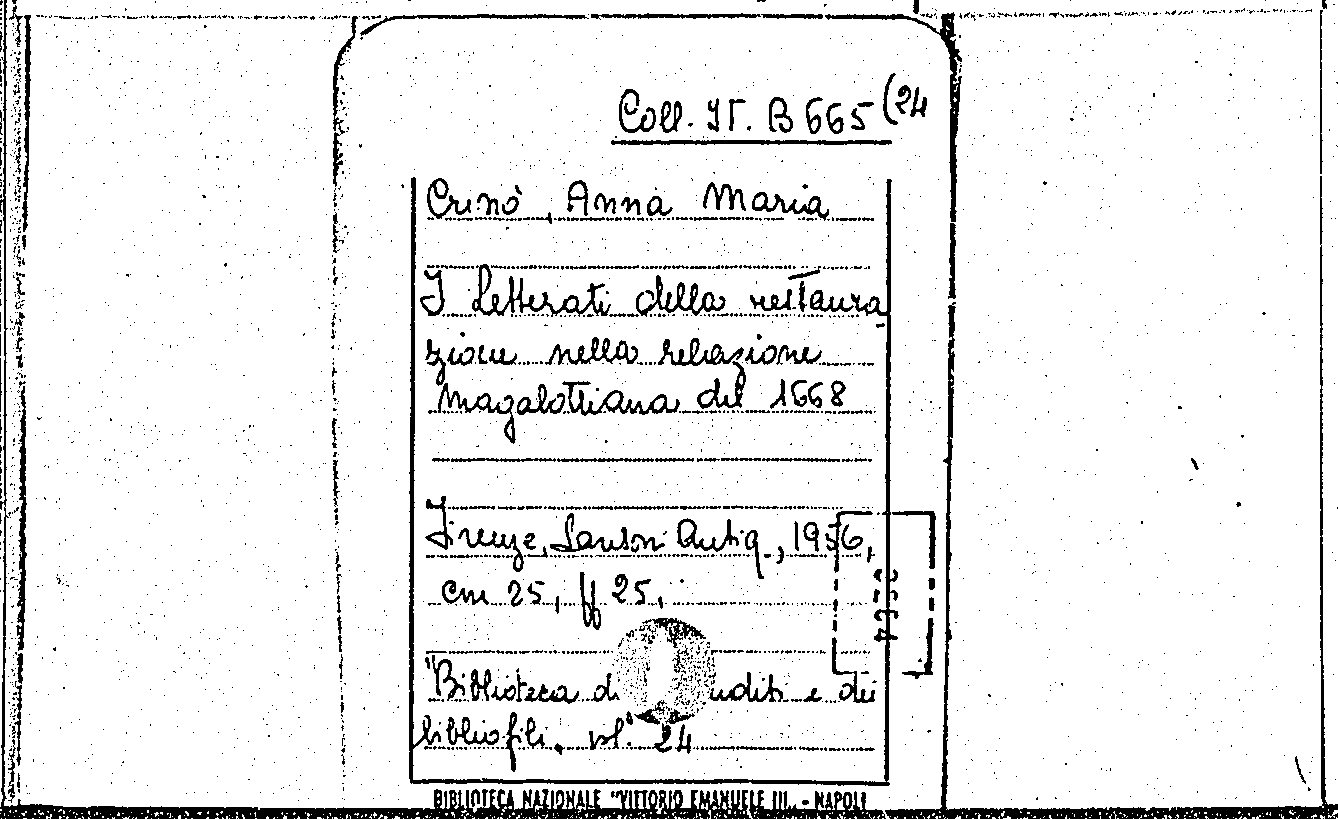 Coll. It. B 665 (24
Crinò, Anna Maria
I Letterati della restaura
zione nella relazione
Magalottiana del 1668
Firenze, Sansoni Antiq., 1956,
cm 25, ff 25.
"Biblioteca d uditi e dei
bibliofili. vol." 24
BIBLIOTECA NAZIONALE "VITTORIO EMANUELE III„ - NAPOLI